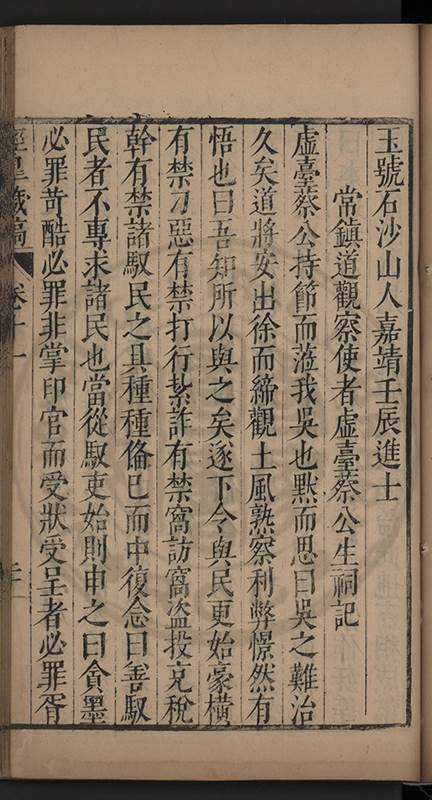 玉號石沙山人嘉靖壬辰進士
常鎮道觀察使者虛臺蔡公生祠記
虛臺蔡公持節而蒞我吳也默而思曰吳之難治
久矣道將安出徐而締觀土風熟察利弊憬然有
悟也曰吾知所以與之矣遂下令與民更始豪橫
有禁刁惡有禁打行紮詐有禁窩訪窩盜投兌稅
幹有禁諸馭民之具種種俻已而中復念曰善馭
民者不專求諸民也當從馭吏始則申之曰貪墨
必罪苛酷必罪非掌印官而受狀受呈者必罪胥
涇臯藏稿 卷十一